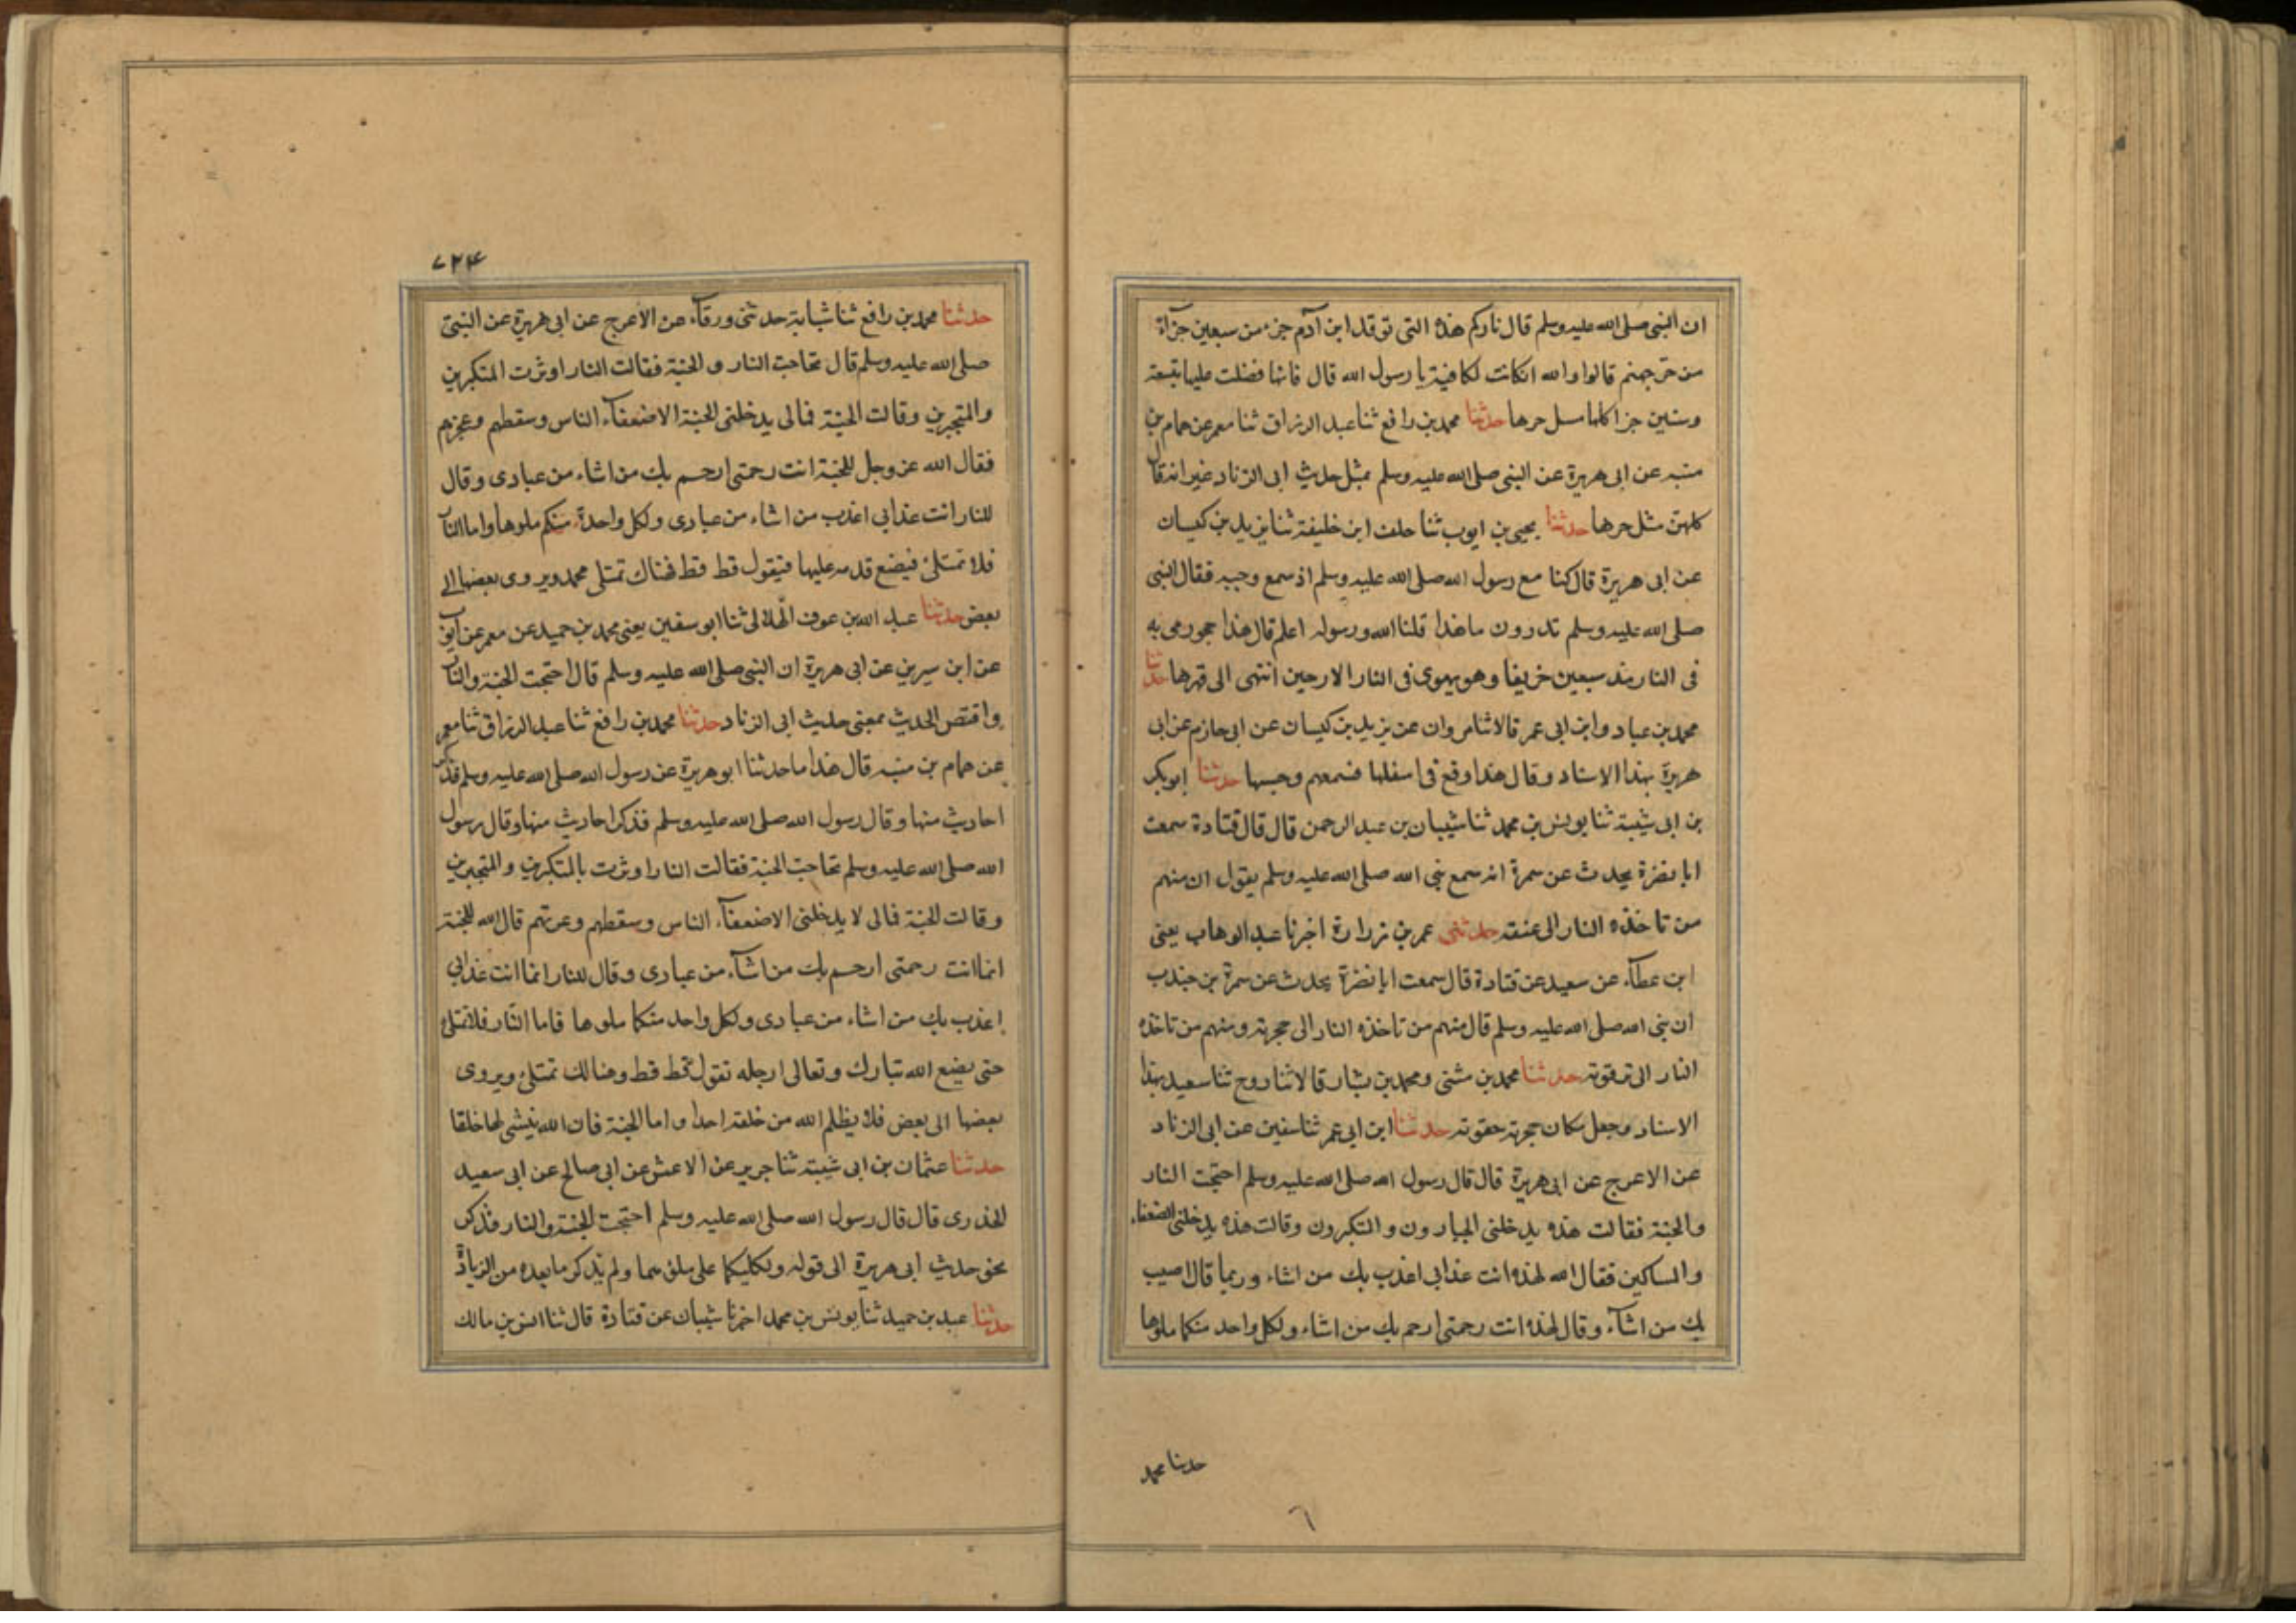 ان النبى صلى الله عليه وسلم قال ناركم هذه التى توقد ابن آدم جزء من سبعين جزآء
من حر جهنم قالوا والله ان كانت لكافية يا رسول الله قال فانها فضلت عليها بتسعة
وستين جزا كلها مثل حرها حدثنا محمد بن رافع ثنا عبد الرزاق ثنا معمر عن همام بن
منبه عن ابى هريرة عن النبى صلى الله عليه وسلم بمثل حديث ابى الزناد غير انه قال
كلهن مثل حرها حدثنا يحيى بن ايوب ثنا خلف ابن خليفة ثنا يزيد بن كيسان
عن ابى هريرة قال كنا مع رسول الله صلى الله عليه وسلم اذ سمع وجبه فقال النبى
صلى الله عليه وسلم تدرون ما هذا قلنا الله ورسوله اعلم قال هذا حجر رمى به
فى النار منذ سبعين خريفا وهو يهوى فى النار الا رحين انتهى الى قعرها حدثنا
محمد بن عباد وابن ابى عمر قالا ثنا مروان عن يزيد بن كيسان عن ابى حازم عن ابى
هريرة بهذا الاسناد وقال هذا وقع فى اسفلها فسمعهم وجبها حدثنا ابو بكر
بن ابى شيبة ثنا يونس بن محمد ثنا شيبان بن عبد الرحمن قال قال قتادة سمعت
ابا نضرة يحدث عن سمرة انه سمع نبى الله صلى الله عليه وسلم يقول ان منهم
من تاخذه النار الى عنقه حدثنى عمر بن زرارة اخبرنا عبد الوهاب يعنى
ابن عطآء عن سعيد عن قتادة قال سمعت ابا نضرة يحدث عن سمرة بن جندب
ان نبى الله صلى الله عليه وسلم قال منهم من تاخذه النار الى حجرته ومنهم من تاخذه
النار الى ترقوته حدثنا محمد بن مثنى ومحمد بن بشار قالا ثنا روح ثنا سعيد بهذا
الاسناد وجعل مكان حجرته حقوته حدثنا ابن ابى عمر ثنا سفين عن ابى الزناد
عن الاعرج عن ابى هريرة قال قال رسول الله صلى الله عليه وسلم احتجت النار
والجنة فقالت هذه يدخلنى الجبارون والمتكبرون وقالت هذه يدخلنى الضعفاء
والمساكين فقال الله لهذه انت عذابى اعذب بك من اشاء وربما قال اصيب
بك من اشآء وقال لهذه انت رحمتى ارحم بك من اشاء ولكل واحد منكما ملوها
حدثنا محمد
٦
٧٢٤
حدثنا محمد بن رافع ثنا شبابة حدثنى ورقآء عن الاعرج عن ابى هريرة عن النبى
صلى الله عليه وسلم قال تحاجت النار والجنة فقالت النار اوثرت المتكبرين
والمتجبرين وقالت الجنة فمالى يدخلنى الجنة الا ضعفآء الناس وسقطهم وعجزهم
فقال الله عز وجل للجنة انت رحمتى ارحم بك من اشاء من عبادى وقال
للنار انت عذابى اعذب من اشاء من عبادى ولكل واحدة منكم ملوها واما النار
فلا تمتلئ فيضع قدمه عليها فيقول قط قط فهناك تمتلى محمد ويروى بعضها الى
بعض حدثنا عبد الله بن عوف الهلالى ثنا ابو سفين يعنى محمد بن حميد عن معمر عن ايوب
عن ابن سيرين عن ابى هريرة ان النبى صلى الله عليه وسلم قال احتجت الجنة والنار
واقتص الحديث بمعنى حديث ابى الزناد حدثنا محمد بن رافع ثنا عبد الرزاق ثنا معمر
عن همام بن منبه قال هذا ما حدثنا ابو هريرة عن رسول الله صلى الله عليه وسلم فذكر
احاديث منها وقال رسول الله صلى الله عليه وسلم فذكر احاديث منها وقال رسول
الله صلى الله عليه وسلم تحاجت الجنة فقالت النار اوثرت بالمتكبرين والمتجبرين
وقالت الجنة فمالى لا يدخلنى الا ضعفآء الناس وسقطهم وغرتهم قال الله للجنة
انما انت رحمتى ارحم بك من اشآء من عبادى وقال للنار انما انت عذابى
اعذب بك من اشاء من عبادى ولكل واحد منكما ملوها فاما النار فلا تمتلئ
حتى يضع الله تبارك وتعالى رجله تقول قط قط وهنالك تمتلئ ويروى
بعضها الى بعض فلا يظلم الله من خلقه احدا واما الجنة فان الله ينشى لها خلقا
حدثنا عثمان بن ابى شيبة ثنا جرير عن الاعمش عن ابى صالح عن ابى سعيد
الخذرى قال قال رسول الله صلى الله عليه وسلم احتجت الجنة والنار فذكر
نحو حديث ابى هريرة الى قوله ولكليكما على ملوهما ولم يذكر ما بعده من الزيادة
حدثنا عبد بن حميد ثنا يونس بن محمد اخبرنا شيبان عن قتادة قال ثنا انس بن مالك